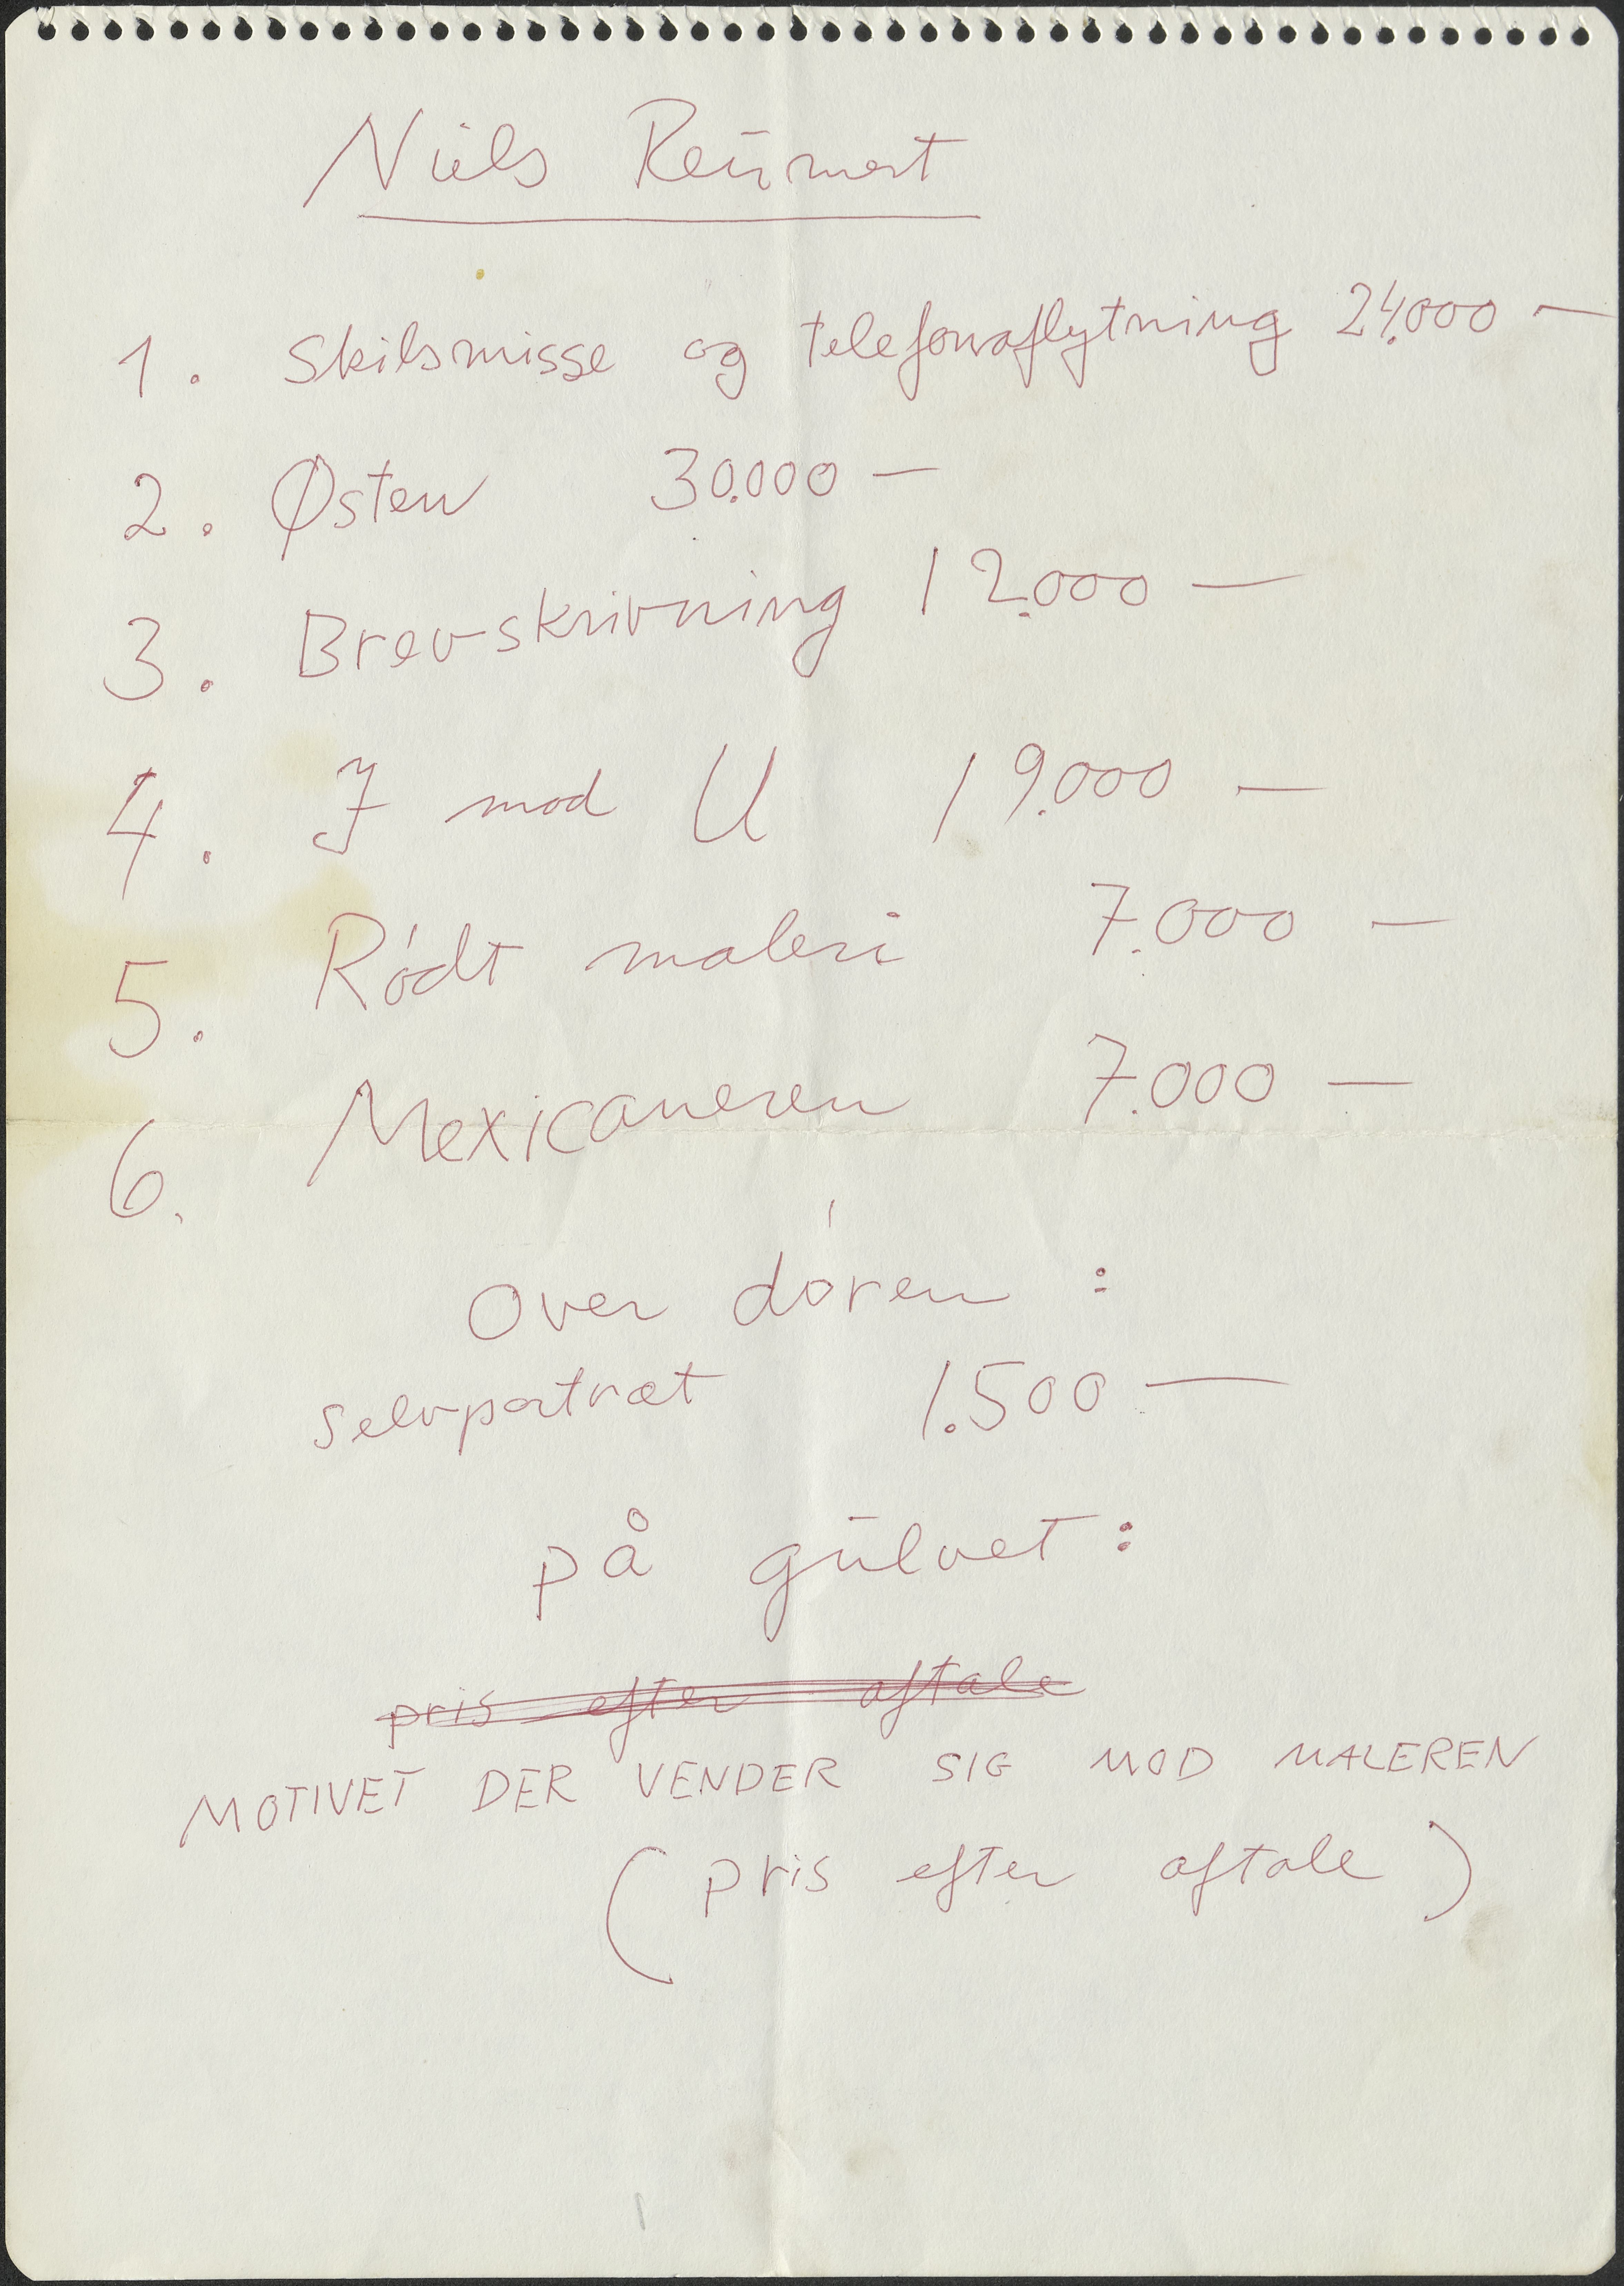 Niels Reumert
1. Skilsmisse og telefonaflytning 24.000 —
2. Østen 30.000 —
3. Brevskrivning 12.000 —
4. J mod U 19.000 —
5. Rødt maleri 7.000 —
6. Mexicaneren 7.000 —
Over døren :
Selvportræt 1.500 —
på gulvet :
pris efter aftale
MOTIVET DER VENDER SIG MOD MALEREN
( pris efter aftale )